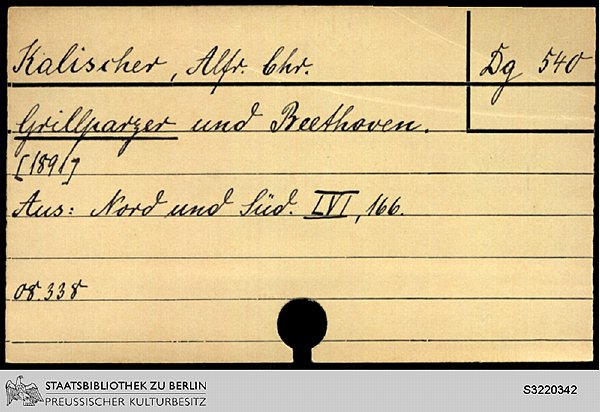 Kalischer, Alfr. Chr.
Dg 540
Grillparzer und Beethoven.
[1891]
Aus: Nord und Süd. LVI, 166.
08.338
STAATSBIBLIOTHEK ZU BERLIN
PREUSSISCHER KULTURBESITZ
S3220342